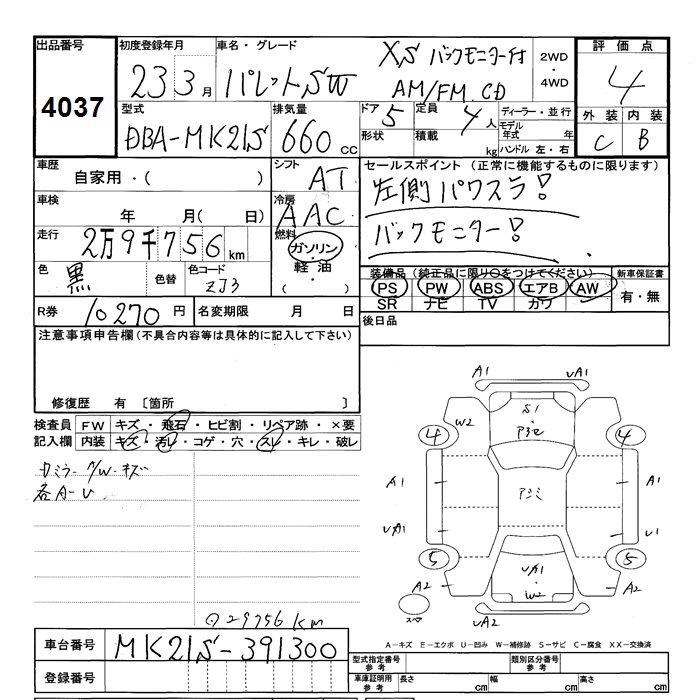 出品番号
4037
初度登録年月
23 3月
車名・グレード
パレットSW
XS バックモニター付
AM/FM CD
2WD
・
4WD
評価点
4
外装 内装
C B
型式
DBA-MK21S
排気量
660 cc
ドア 5
形状
定員 4人
積載 kg
ディーラー・並行
モデル
年式 年
ハンドル 左・右
車歴
自家用・( )
シフト
AT
セールスポイント(正常に機能するものに限ります)
左側パワスラ!
バックモニター!
車検
年 月(日)
冷房
AAC
走行
2万9千756km
燃料
ガソリン・
軽油・
( )
色 黒
色替
色コード
ZJ3
装備品(純正品に限り○をつけてください)
PS PW ABS エアB AW
SR ナビ TV カワ
新車保証書
有・無
R券 10270円
名変期限 月 日
後日品
注意事項申告欄(不具合内容等は具体的に記入して下さい)
修復歴 有 〔箇所 〕
検査員
記入欄
FW キズ・飛石・ヒビ割・リペア跡・×要
内装 キズ・汚れ・コゲ・穴・スレ・キレ・破レ
カミラー P/W キズ
各A-U
29756 km
A1 UA1
W2
S1
アミセ
4 4
A1 アミ A1
UA1 U1
5 5
UA1
W2
A2 A2
スペア
UA2
A-キズ E-エクボ U-凹み W-補修跡 S-サビ C-腐食 XX-交換済
車台番号
MK21S-391300
登録番号
型式指定番号
参考
類別区分番号
参考
車庫証明用
参考
長さ cm 幅 cm 高さ cm